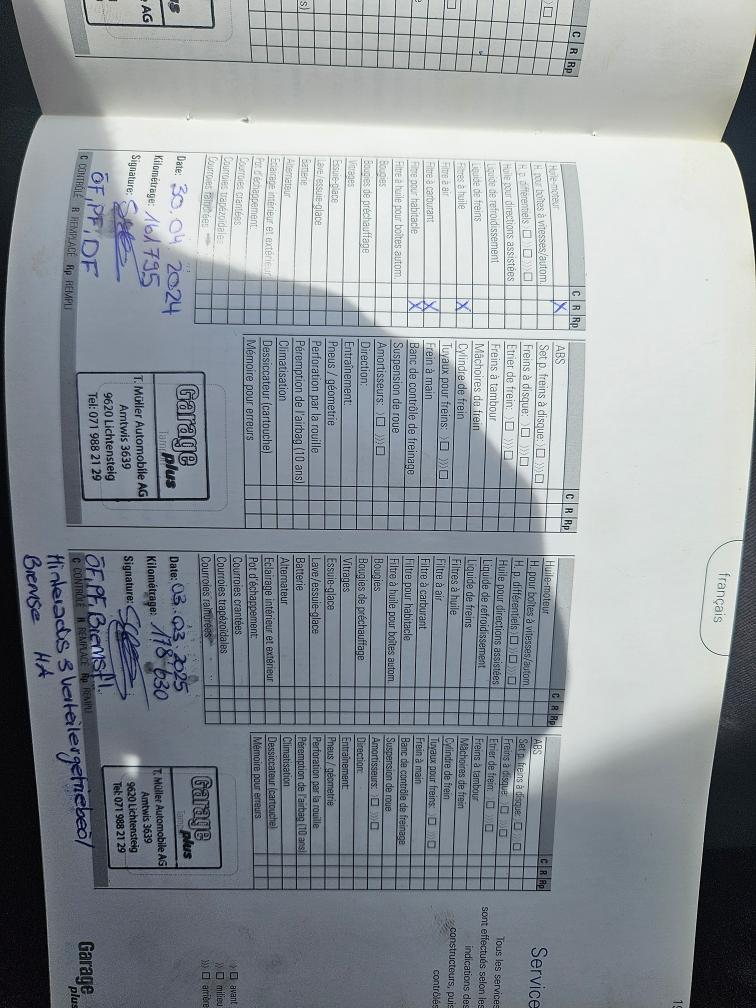 s)
AG
C R Rp
français
Huile-moteur
H. pour boîtes à vitesses/autom.
H. p. différentiels 〉□ 〉〉□ 〉〉〉□
Huile pour directions assistées
Liquide de refroidissement
Liquide de freins
Filtres à huile
Filtre à air
Filtre à carburant
Filtre pour habitacle
Filtre à huile pour boîtes autom.
Bougies
Bougies de préchauffage
Vitrages
Essuie-glace
Lave /essuie-glace
Batterie
Alternateur
Eclairage intérieur et extérieur
Pot d'échappement
Courroies crantées
Courroies trapézoïdales
Courroies rainurées
C R Rp
X
X
X
X
Date: 30.04.2024
Kilométrage: 161795
Signature:
C CONTRÔLÉ R REMPLACÉ Rp REMPLI
ÖF, PF, DF
ABS
Set p. freins à disque: 〉□ 〉〉〉□
Freins à disque: 〉□ 〉〉〉□
Etrier de frein: 〉□ 〉〉〉□
Freins à tambour
Mâchoires de frein
Cylindre de frein
Tuyaux pour freins: 〉□ 〉〉〉□
Frein à main
Banc de contrôle de freinage
Suspension de roue
Amortisseurs: 〉□ 〉〉〉□
Direction:
Entraînement:
Pneus / géometrie
Perforation par la rouille
Péremption de l'airbag (10 ans)
Climatisation
Dessiccateur (cartouche)
Mémoire pour erreurs
C R Rp
Garage
plus
T. Müller Automobile AG
Amtwis 3639
9620 Lichtensteig
Tel: 071 988 21 29
Huile-moteur
H. pour boîtes à vitesses/autom.
H. p. différentiels 〉□ 〉〉□ 〉〉〉□
Huile pour directions assistées
Liquide de refroidissement
Liquide de freins
Filtres à huile
Filtre à air
Filtre à carburant
Filtre pour habitacle
Filtre à huile pour boîtes autom.
Bougies
Bougies de préchauffage
Vitrages
Essuie-glace
Lave /essuie-glace
Batterie
Alternateur
Eclairage intérieur et extérieur
Pot d'échappement:
Courroies crantées
Courroies trapézoïdales
Courroies rainurées
C R Rp
Date: 03.03.2025
Kilométrage: 178 630
Signature:
C CONTRÔLÉ R REMPLACÉ Rp REMPLI
ÖF, PF, Bremsfl.
Hinterachs & Verteilergetriebeöl
Bremse HA
ABS
Set p. freins à disque: 〉□ 〉〉〉□
Freins à disque: 〉□ 〉〉〉□
Etrier de frein: 〉□ 〉〉〉□
Freins à tambour
Mâchoires de frein
Cylindre de frein
Tuyaux pour freins: 〉□ 〉〉〉□
Frein à main
Banc de contrôle de freinage
Suspension de roue
Amortisseurs: 〉□ 〉〉〉□
Direction:
Entraînement:
Pneus / géometrie
Perforation par la rouille
Péremption de l'airbag (10 ans)
Climatisation
Dessiccateur (cartouche)
Mémoire pour erreurs
C R Rp
Garage
plus
T. Müller Automobile AG
Amtwis 3639
9620 Lichtensteig
Tel: 071 988 21 29
Service
Tous les services
sont effectués selon les
indications des
constructeurs, puis
contrôlés
〉 □ avant
〉〉 □ milieu
〉〉〉 □ arrière
Garage
plus